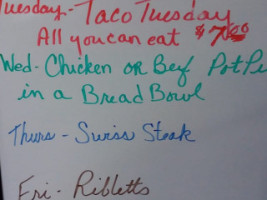 Tuesday - Taco Tuesday
All you can eat
Wed - Chicken or Beef Pot Pie
in a Bread Bowl
Thurs - Swiss Steak
Fri - Ribletts